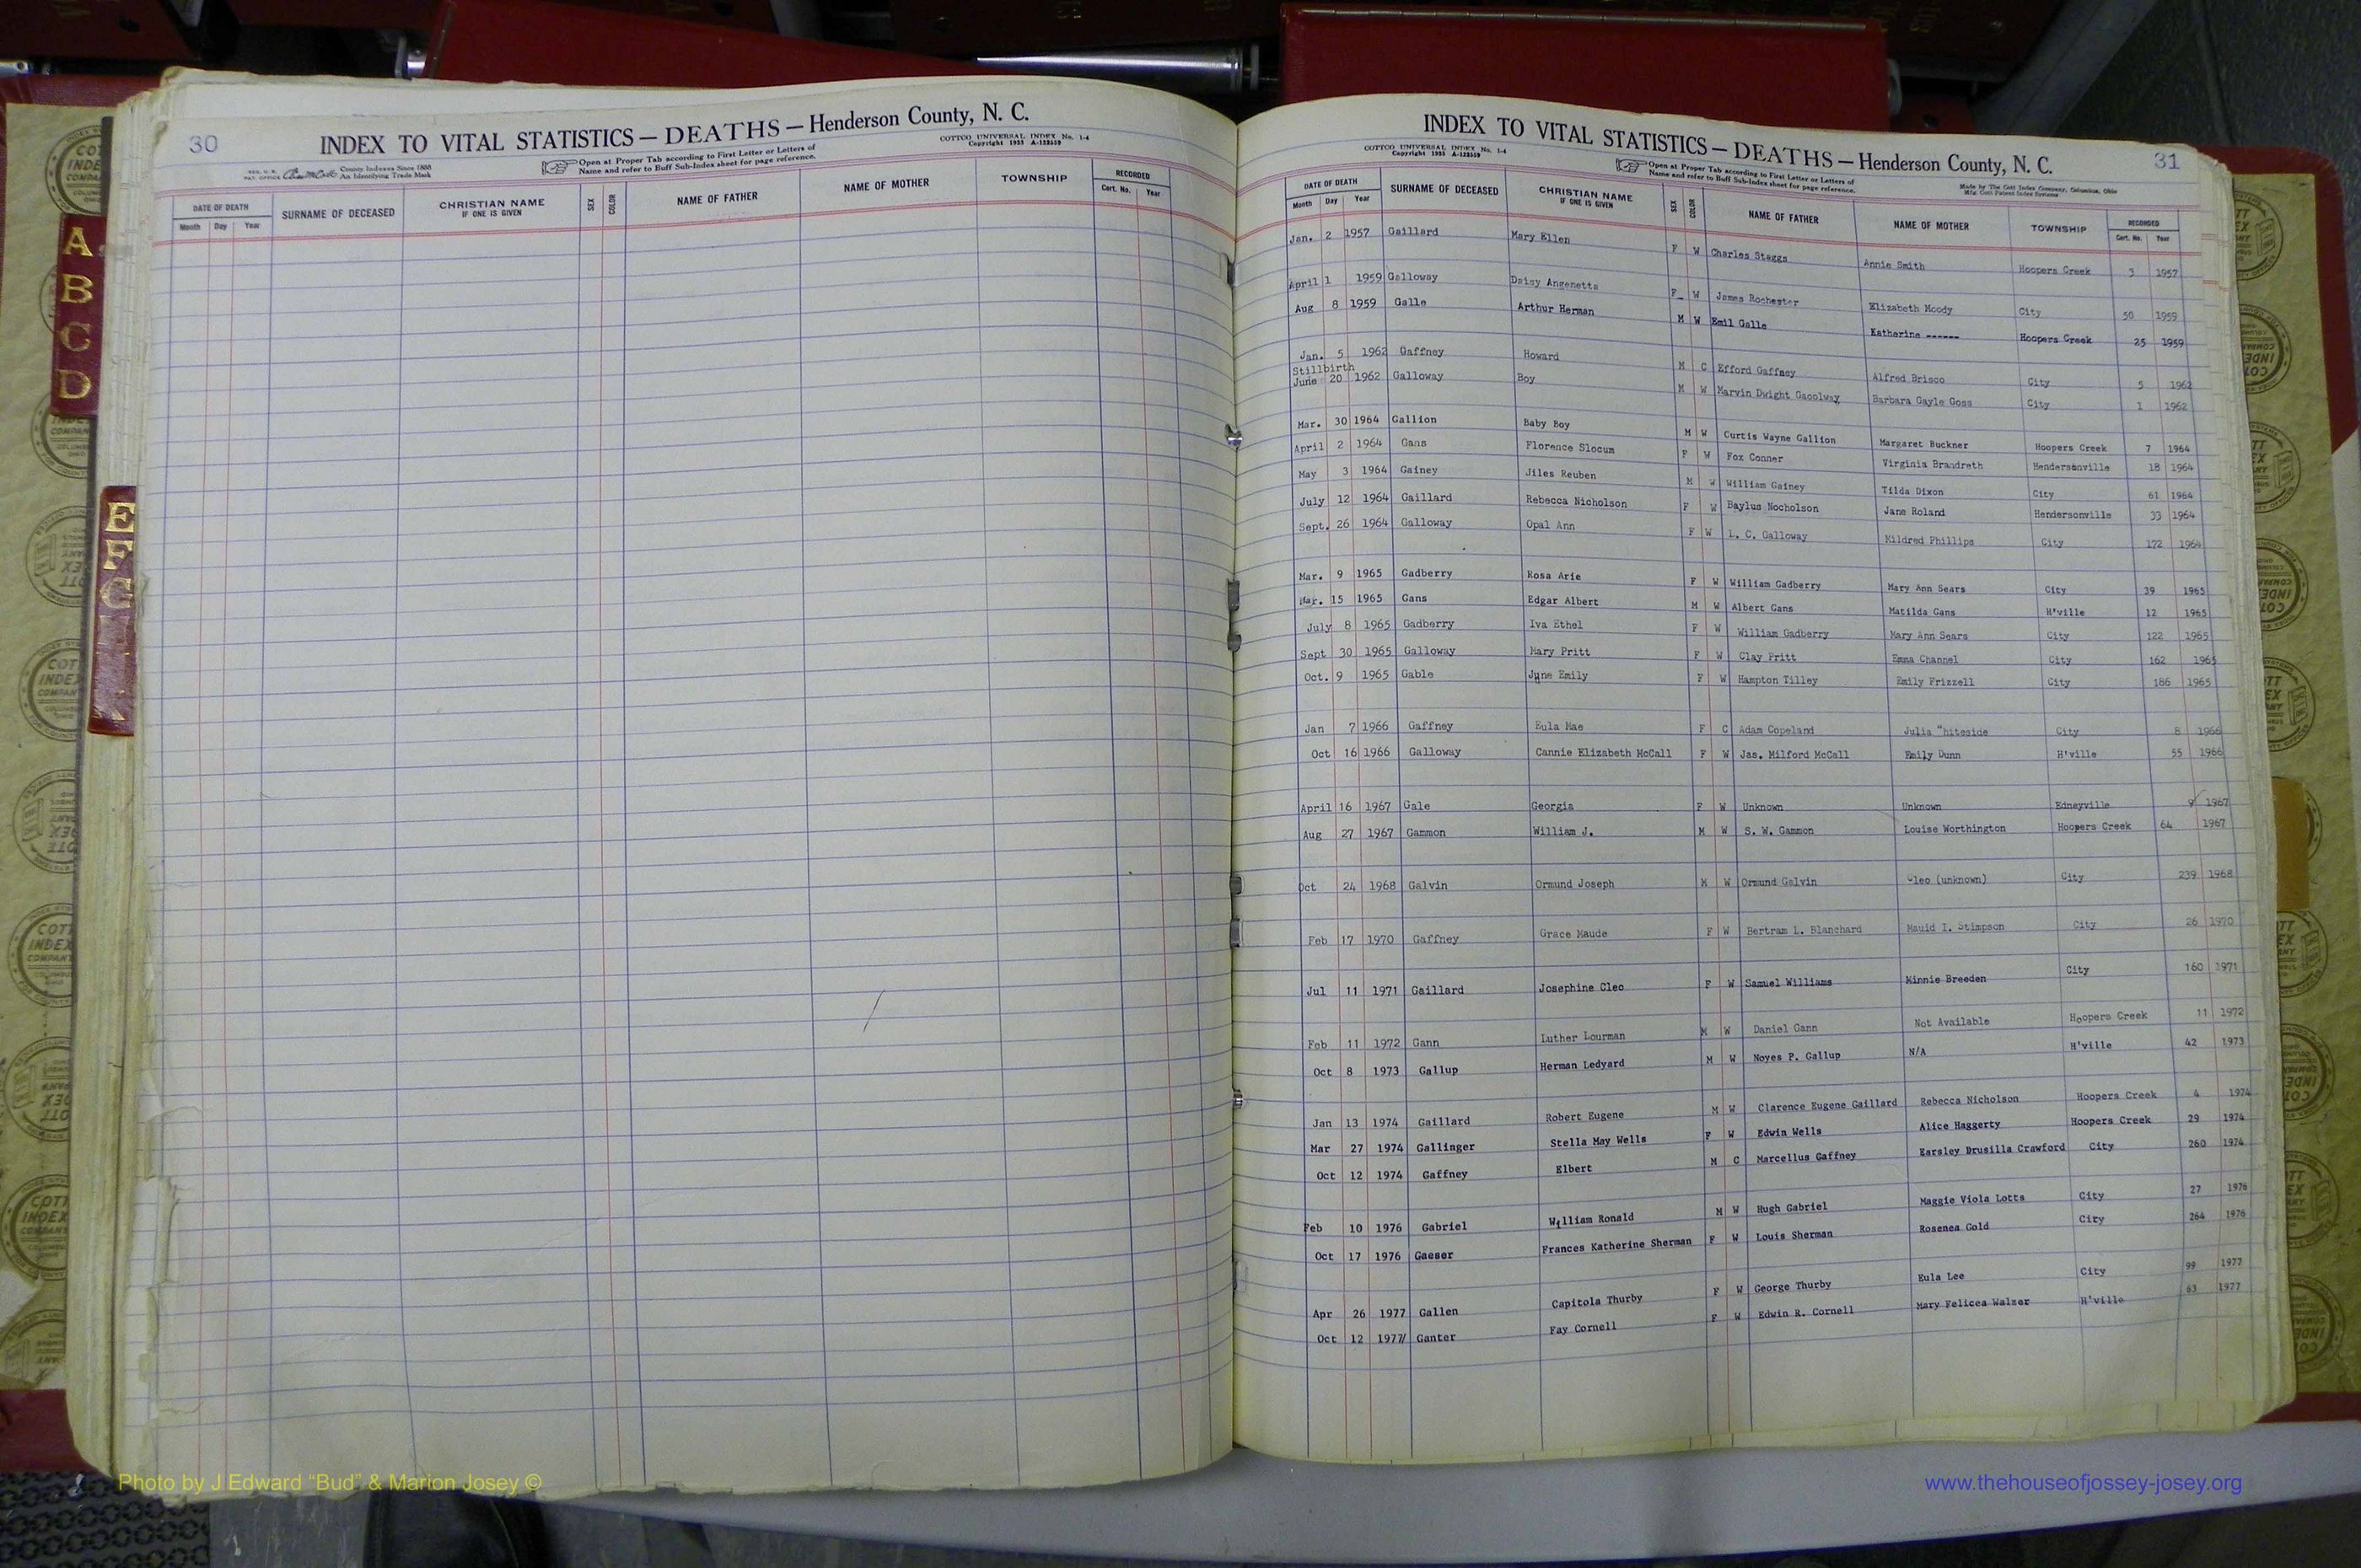 30
INDEX TO VITAL STATISTICS — DEATHS — Henderson County, N. C.
COTTCO UNIVERSAL INDEX No. 1-4
Copyright 1933 A-122559
County Indexes Since 1888
An Identifying Trade Mark
Open at Proper Tab according to First Letter or Letters of
Name and refer to Buff Sub-Index sheet for page reference.
DATE OF DEATH SURNAME OF DECEASED CHRISTIAN NAME IF ONE IS GIVEN SEX COLOR NAME OF FATHER NAME OF MOTHER TOWNSHIP RECORDED
Month Day Year Cert. No. Year
A
B
C
D
E
F
G
INDEX TO VITAL STATISTICS — DEATHS — Henderson County, N. C.
31
COTTCO UNIVERSAL INDEX No. 1-4
Copyright 1933 A-122559
Open at Proper Tab according to First Letter or Letters of
Name and refer to Buff Sub-Index sheet for page reference.
Made by The Cott Index Company, Columbus, Ohio
Mfg. Cott Patent Index Systems
DATE OF DEATH SURNAME OF DECEASED CHRISTIAN NAME IF ONE IS GIVEN SEX COLOR NAME OF FATHER NAME OF MOTHER TOWNSHIP RECORDED
Month Day Year Cert. No. Year
Jan. 2 1957 Gaillard Mary Ellen F W Charles Staggs Annie Smith Hoopers Creek 3 1957
April 1 1959 Galloway Daisy Angenetta F W James Rochester Elizabeth Moody City 50 1959
Aug 8 1959 Galle Arthur Herman M W Emil Galle Katherine ------ Hoopers Creek 25 1959
Jan. 5 1962 Gaffney Howard M C Efford Gaffney Alfred Brisco City 5 1962
Stillbirth
June 20 1962 Galloway Boy M W Marvin Dwight Gaoolway Barbara Gayle Goss City 1 1962
Mar. 30 1964 Gallion Baby Boy M W Curtis Wayne Gallion Margaret Buckner Hoopers Creek 7 1964
April 2 1964 Gans Florence Slocum F W Fox Conner Virginia Brandreth Hendersonville 18 1964
May 3 1964 Gainey Jiles Reuben M W William Gainey Tilda Dixon City 61 1964
July 12 1964 Gaillard Rebecca Nicholson F W Baylus Nocholson Jane Roland Hendersonville 33 1964
Sept. 26 1964 Galloway Opal Ann F W L. C. Galloway Mildred Phillips City 172 1964
Mar. 9 1965 Gadberry Rosa Arie F W William Gadberry Mary Ann Sears City 39 1965
Mar. 15 1965 Gans Edgar Albert M W Albert Gans Matilda Gans H'ville 12 1965
July 8 1965 Gadberry Iva Ethel F W William Gadberry Mary Ann Sears City 122 1965
Sept 30 1965 Galloway Mary Pritt F W Clay Pritt Emma Channel City 162 1965
Oct. 9 1965 Gable June Emily F W Hampton Tilley Emily Frizzell City 186 1965
Jan 7 1966 Gaffney Eula Mae F C Adam Copeland Julia "hiteside City 8 1966
Oct 16 1966 Galloway Cannie Elizabeth McCall F W Jas. Milford McCall Emily Dunn H'ville 55 1966
April 16 1967 Gale Georgia F W Unknown Unknown Edneyville 9 1967
Aug 27 1967 Gammon William J. M W S. W. Gammon Louise Worthington Hoopers Creek 64 1967
Oct 24 1968 Galvin Ormund Joseph M W Ormund Galvin Cleo (unknown) City 239 1968
Feb 17 1970 Gaffney Grace Maude F W Bertram L. Blanchard Mauid I. Stimpson City 26 1970
Jul 11 1971 Gaillard Josephine Cleo F W Samuel Williams Minnie Breeden City 160 1971
Feb 11 1972 Gann Luther Lourman M W Daniel Gann Not Available Hoopers Creek 11 1972
Oct 8 1973 Gallup Herman Ledyard M W Noyes P. Gallup N/A H'ville 42 1973
Jan 13 1974 Gaillard Robert Eugene M W Clarence Eugene Gaillard Rebecca Nicholson Hoopers Creek 4 1974
Mar 27 1974 Gallinger Stella May Wells F W Edwin Wells Alice Haggerty Hoopers Creek 29 1974
Oct 12 1974 Gaffney Elbert M C Marcellus Gaffney Earsley Drusilla Crawford City 260 1974
Feb 10 1976 Gabriel William Ronald M W Hugh Gabriel Maggie Viola Lotts City 27 1976
Oct 17 1976 Gaeser Frances Katherine Sherman F W Louis Sherman Rosenea Gold City 264 1976
Apr 26 1977 Gallen Capitola Thurby F W George Thurby Eula Lee City 99 1977
Oct 12 1977 Ganter Fay Cornell F W Edwin R. Cornell Mary Felicea Walzer H'ville 63 1977
Photo by J Edward “Bud” & Marion Josey ©
www.thehouseofjossey-josey.org